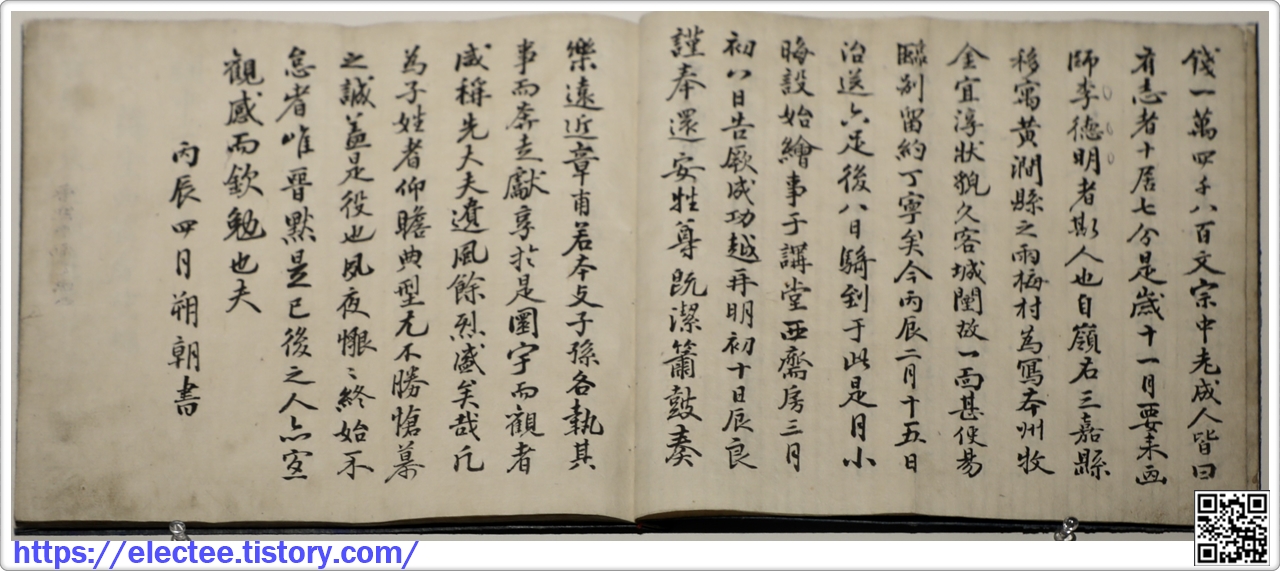 餞一萬四千八百文宗中老成人皆曰
有志者十居七分是歲十一月要来画
師李德明者斯人也自嶺右三嘉縣
移寓黄澗縣之雨梅村為寫本州牧
金宜淳狀貌久客城闉故一面甚便易
臨別留約丁寧矣今丙辰二月十五日
治送六足後八日騎到于此是月小
晦設始繪事于講堂西齋房三月
初八日告厥成功越再明初十日辰良
謹奉還安牲尊既潔簫鼓奏
樂遠近章甫若本支子孫各執其
事而奔走獻享於是圜宇而觀者
咸稱先大夫遺風餘烈盛矣哉凡
為子姓者仰瞻典型尤不勝愴慕
之誠蓋是役也夙夜慨〻終始不
怠者唯晋黙是已後之人亦宜
觀感而欽勉也夫
丙辰四月朔朝書
https://electee.tistory.com/